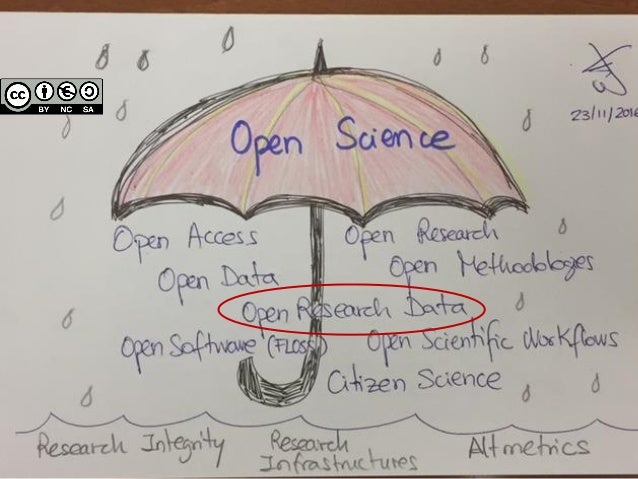 cc
BY NC SA
23/11/2016
Open Science
Open Access
Open Research
Open Data
Open Methodologies
Open Research Data
Open Software (FLOSS)
Open Scientific Workflows
Citizen Science
Research Integrity
Research Infrastructures
Altmetrics